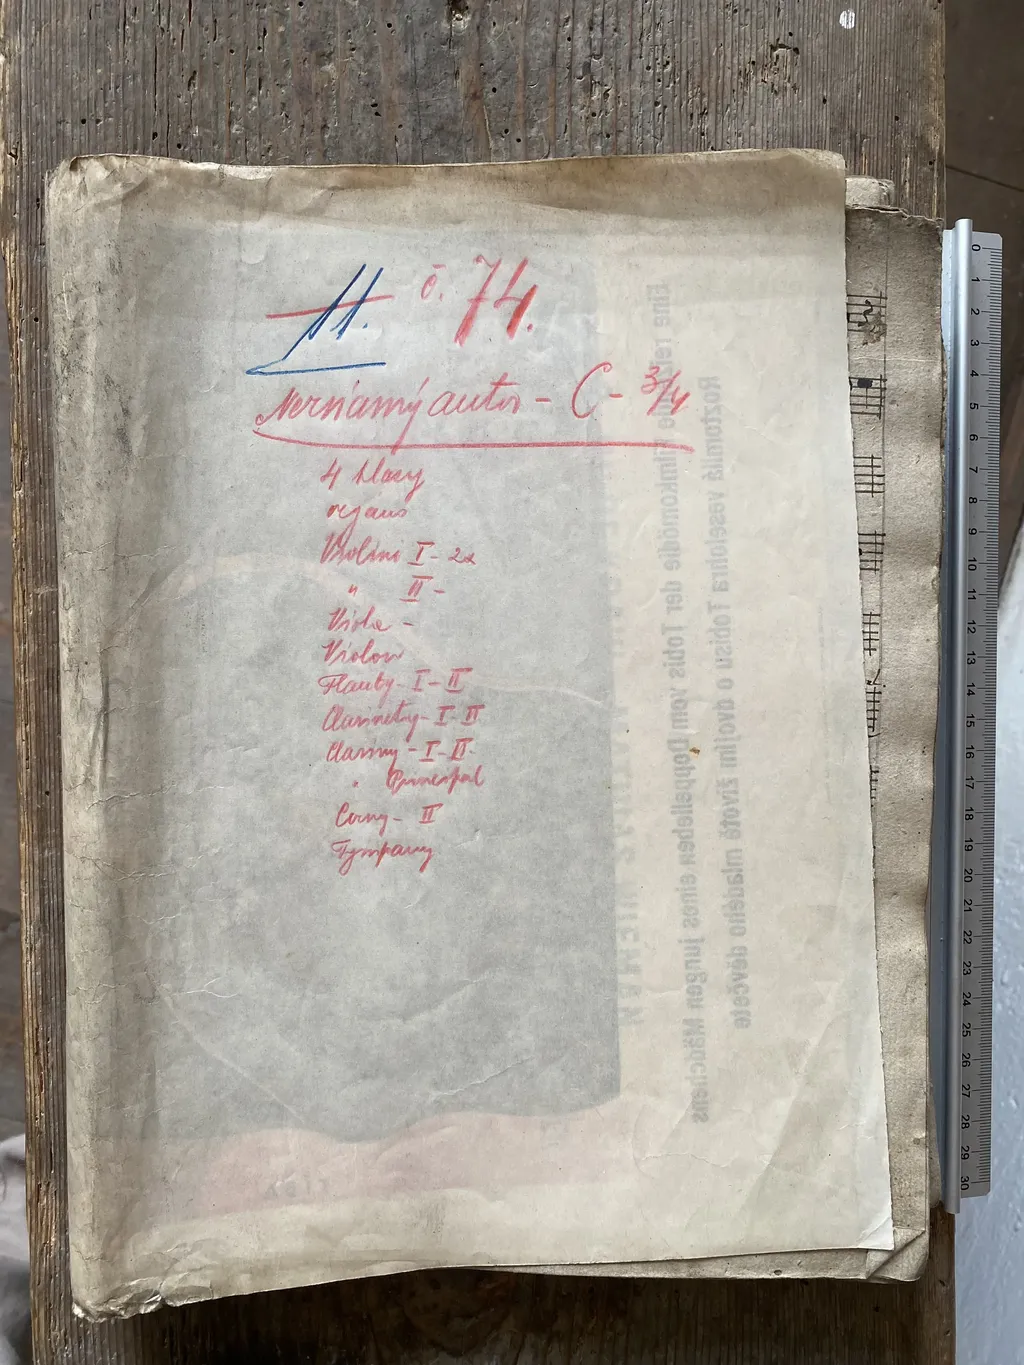 11. č. 74.
Neznámý autor - C - 3/4
4 hlasy
organo
Violini I - 2x
" II -
Viola -
Violon
Flauty - I - II
Clarinety - I - II
Clariny - I - II
" Principal
Corny - II
Tympany
Rozkošná veselohra Tobisu o dvojím životě mladého děvčete
Eine reizende Filmkomödie der Tobis vom Doppelleben eines jungen Mädchens
0 1 2 3 4 5 6 7 8 9 10 11 12 13 14 15 16 17 18 19 20 21 22 23 24 25 26 27 28 29 30